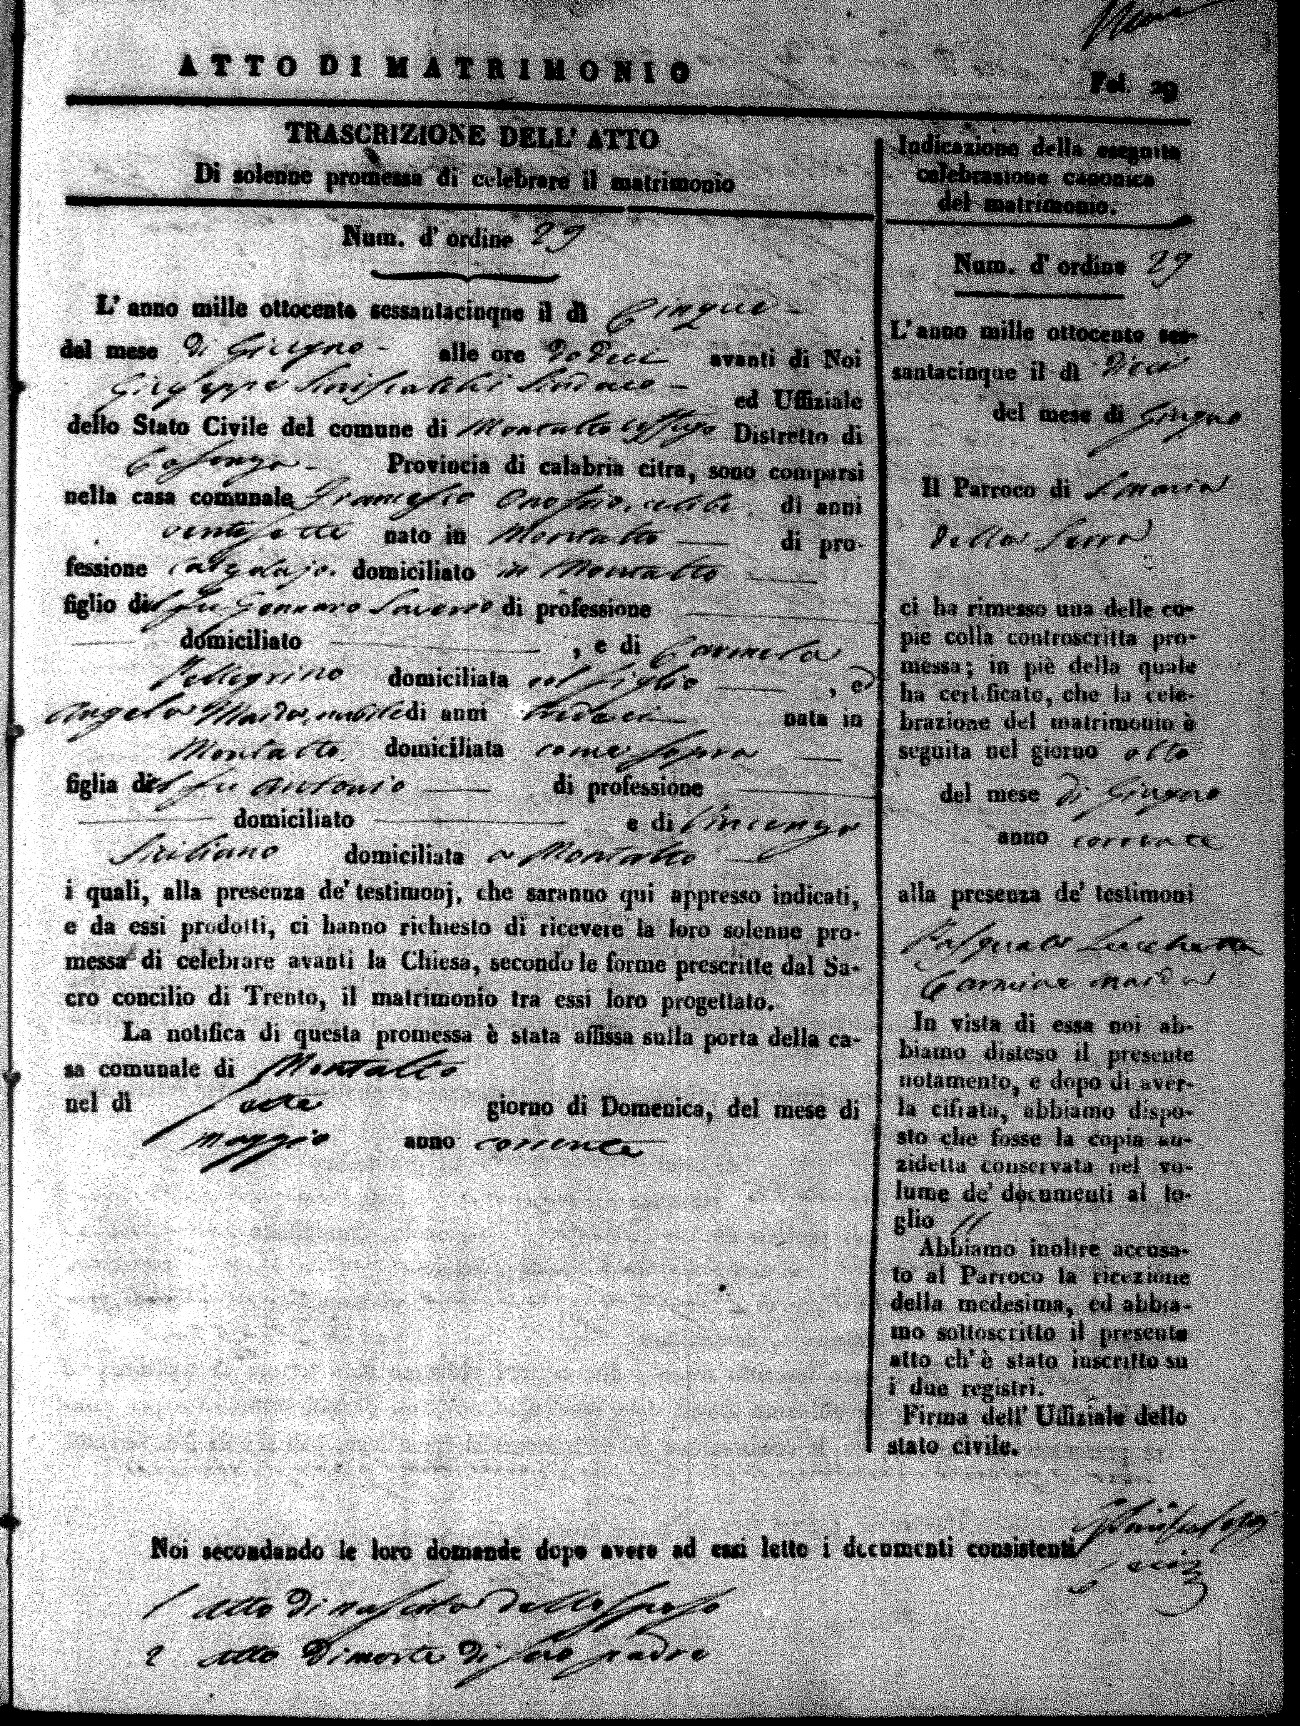 ATTO DI MATRIMONIO
Fol. 29
TRASCRIZIONE DELL' ATTO
Di solenne promessa di celebrare il matrimonio
Num. d' ordine 29
L' anno mille ottocento sessantacinque il dì Cinque
del mese di Giugno alle ore dodeci avanti di Noi
Giuseppe Siniscalchi Sindaco ed Uffiziale
dello Stato Civile del comune di Montalto Uffugo Distretto di
Cosenza Provincia di calabria citra, sono comparsi
nella casa comunale Francesco celibe di anni
ventisette nato in Montalto di pro-
fessione domiciliato in Montalto
figlio di fu Gennaro Saverio di professione
domiciliato , e di Carmela
Pellegrino domiciliata col figlio , e
Angela Maria nubile di anni nata in
Montalto domiciliata come sopra
figlia di fu Antonio di professione
domiciliato e di Vincenza
Siciliano domiciliata a Montalto
i quali, alla presenza de' testimonj, che saranno qui appresso indicati,
e da essi prodotti, ci hanno richiesto di ricevere la loro solenne pro-
messa di celebrare avanti la Chiesa, secondo le forme prescritte dal Sa-
cro concilio di Trento, il matrimonio tra essi loro progettato.
La notifica di questa promessa è stata affissa sulla porta della ca-
sa comunale di Montalto
nel dì sette giorno di Domenica, del mese di
maggio anno corrente
Indicazione della eseguita
celebrazione canonica
del matrimonio.
Num. d' ordine 29
L' anno mille ottocento ses-
santacinque il dì Dieci
del mese di Giugno
Il Parroco di S. Maria
della Serra
ci ha rimesso una delle co-
pie colla controscritta pro-
messa; in piè della quale
ha certificato, che la cele-
brazione del matrimonio è
seguita nel giorno otto
del mese di Giugno
anno corrente
alla presenza de' testimoni
Pasquale
Carmine
In vista di essa noi ab-
biamo disteso il presente
notamento, e dopo di aver-
la cifrata, abbiamo dispo-
sto che fosse la copia au-
zidetta conservata nel vo-
lume de' documenti al fo-
glio
Abbiamo inoltre accusa-
to al Parroco la ricezione
della medesima, ed abbia-
mo sottoscritto il presente
atto ch' è stato inscritto su
i due registri.
Firma dell' Uffiziale dello
stato civile.
Noi secondando le loro domande dopo avere ad essi letto i documenti consistenti
1 atto di nascita dello sposo
2 atto di morte di suo padre